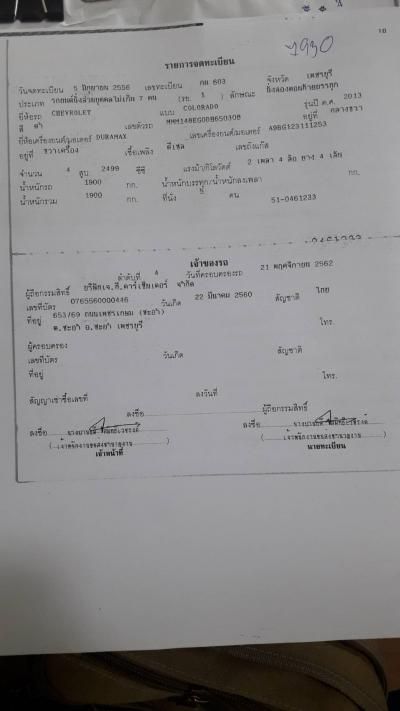 7930
10
รายการจดทะเบียน
วันจดทะเบียน 5 มิถุนายน 2556 เลขทะเบียน กม 603 จังหวัด เพชรบุรี
ประเภท รถยนต์นั่งส่วนบุคคลไม่เกิน 7 คน (รย. 1 ) ลักษณะ นั่งสองตอนท้ายบรรทุก
ยี่ห้อรถ CHEVROLET แบบ COLORADO รุ่นปี ค.ศ. 2013
สี ดำ เลขตัวรถ MMM148EG0DH650308 อยู่ที่ กลางขวา
ยี่ห้อเครื่องยนต์/มอเตอร์ DURAMAX เลขเครื่องยนต์/มอเตอร์ A9BG123111253
อยู่ที่ ขวาเครื่อง เชื้อเพลิง ดีเซล เลขถังแก๊ส
จำนวน 4 สูบ 2499 ซีซี แรงม้า/กิโลวัตต์ 2 เพลา 4 ล้อ ยาง 4 เส้น
น้ำหนักรถ 1900 กก. น้ำหนักบรรทุก/น้ำหนักลงเพลา กก.
น้ำหนักรวม 1900 กก. ที่นั่ง คน 51-0461233
เจ้าของรถ
ลำดับที่ 4 วันที่ครอบครองรถ 21 พฤศจิกายน 2562
ผู้ถือกรรมสิทธิ์ บริษัทเจ.ที.คาร์เซ็นเตอร์ จำกัด
เลขที่บัตร 0765560000446 วันเกิด 22 มีนาคม 2560 สัญชาติ ไทย
ที่อยู่ 653/69 ถนนเพชรเกษม (ชะอำ)
ต.ชะอำ อ.ชะอำ เพชรบุรี โทร.
ผู้ครอบครอง
เลขที่บัตร วันเกิด สัญชาติ
ที่อยู่ โทร.
สัญญาเช่าซื้อเลขที่ ลงวันที่
ลงชื่อ ผู้ถือกรรมสิทธิ์
ลงชื่อ ลงชื่อ
เจ้าหน้าที่ นายทะเบียน